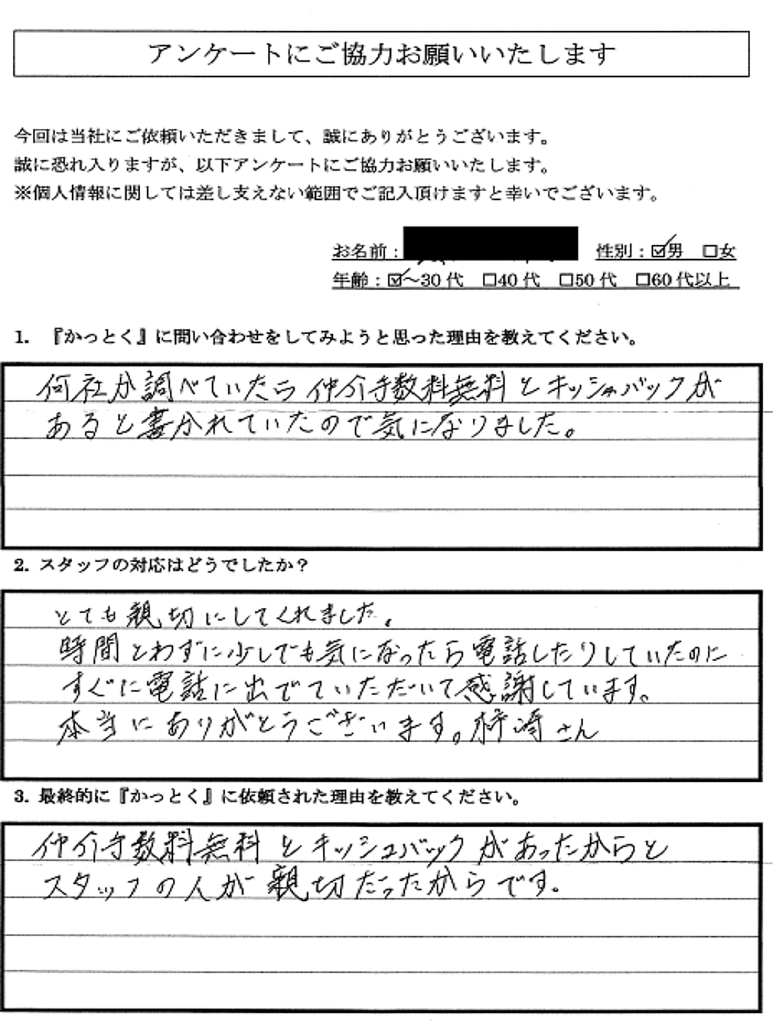 アンケートにご協力お願いいたします
今回は当社にご依頼いただきまして、誠にありがとうございます。
誠に恐れ入りますが、以下アンケートにご協力お願いいたします。
※個人情報に関しては差し支えない範囲でご記入頂けますと幸いでございます。
お名前： 性別：☑男 □女
年齢：☑～30代 □40代 □50代 □60代以上
1. 『かっとく』に問い合わせをしてみようと思った理由を教えてください。
何社か調べていたら仲介手数料無料とキャッシュバックが
あると書かれていたので気になりました。
2. スタッフの対応はどうでしたか？
とても親切にしてくれました。
時間とわずに少しでも気になったら電話したりしていたのに
すぐに電話に出でていただいて感謝しています。
本当にありがとうございます。柿崎さん
3. 最終的に『かっとく』に依頼された理由を教えてください。
仲介手数料無料とキッシュバックがあったからと
スタッフの人が親切だったからです。